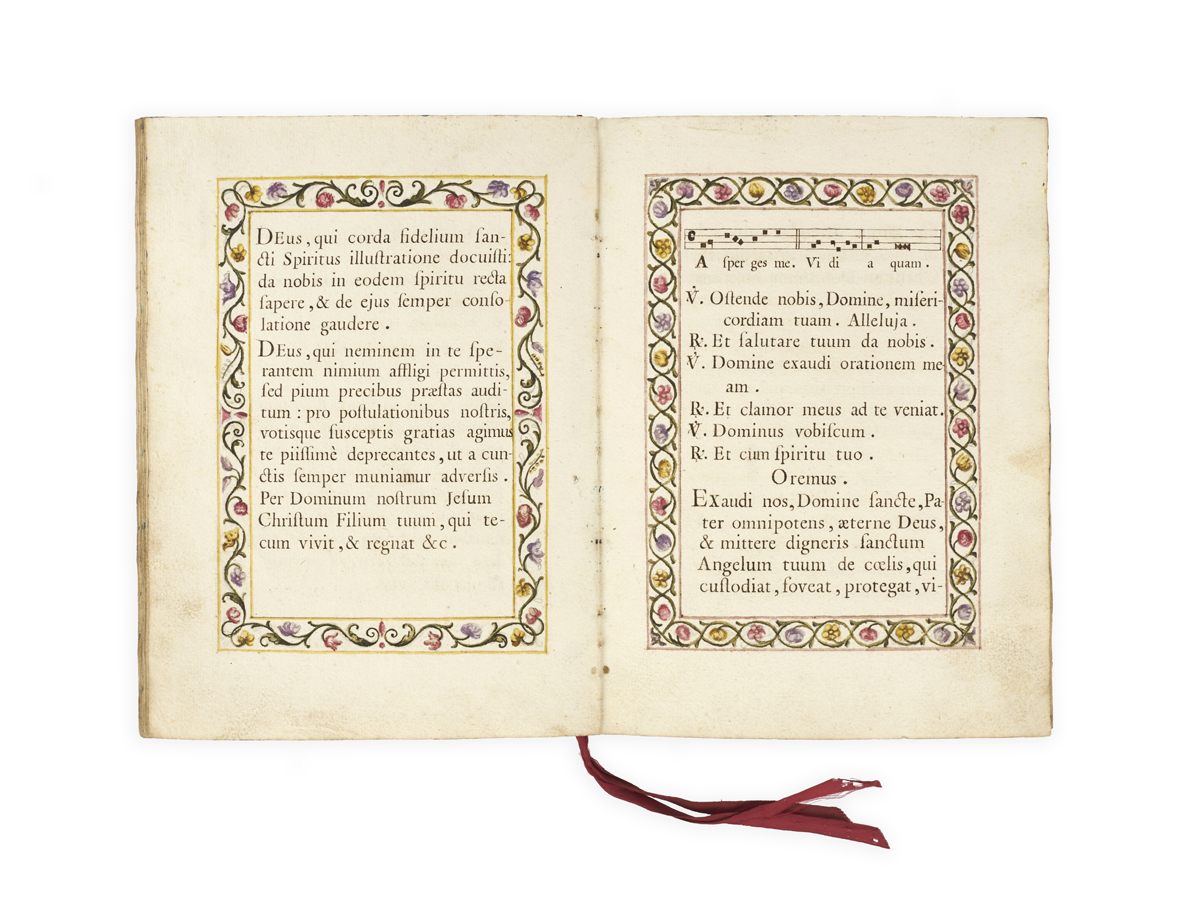 DEus, qui corda fidelium ſan-
cti Spiritus illuſtratione docuiſti:
da nobis in eodem ſpiritu recta
ſapere, & de ejus ſemper conſo-
latione gaudere.
DEus, qui neminem in te ſpe-
rantem nimium affligi permittis,
ſed pium precibus præſtas audi-
tum : pro poſtulationibus noſtris,
votisque ſusceptis gratias agimus
te piiſſimè deprecantes, ut a cun-
ctis ſemper muniamur adverſis.
Per Dominum noſtrum Jeſum
Chriſtum Filium tuum, qui te-
cum vivit, & regnat &c.
A ſper ges me. Vi di a quam.
V̇. Oſtende nobis, Domine, miſeri-
cordiam tuam. Alleluja.
℟. Et ſalutare tuum da nobis.
V̇. Domine exaudi orationem me-
am.
℟. Et clamor meus ad te veniat.
V̇. Dominus vobiſcum.
℟. Et cum ſpiritu tuo.
Oremus.
EXaudi nos, Domine ſancte, Pa-
ter omnipotens, æterne Deus,
& mittere digneris ſanctum
Angelum tuum de cœlis, qui
cuſtodiat, foveat, protegat, vi-